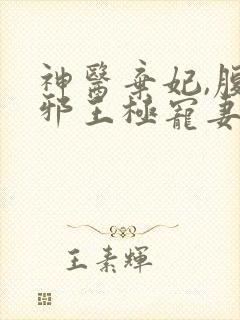 神醫棄妃,腹
邪王極寵妻
王素輝